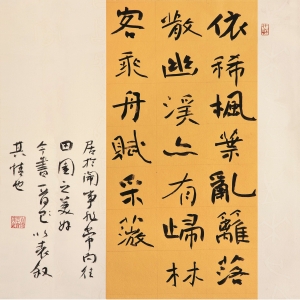 依稀楓葉亂籬落
散幽溪亦有歸林
客乘舟賦采薇
居於鬧事非常向往
田園之美好
今書一首以表叙
其情也